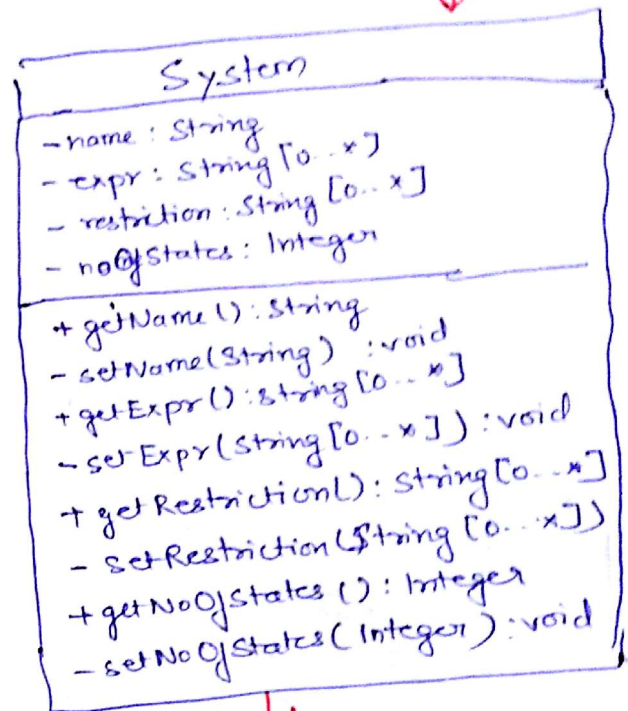 System
- name : String
- expr : String [0..*]
- restriction : String [0..*]
- noOfStates : Integer
+ getName() : String
- setName(String) : void
+ getExpr() : String [0..*]
- setExpr(String [0..*]) : void
+ getRestriction() : String [0..*]
- setRestriction(String [0..*])
+ getNoOfStates() : Integer
- setNoOfStates(Integer) : void